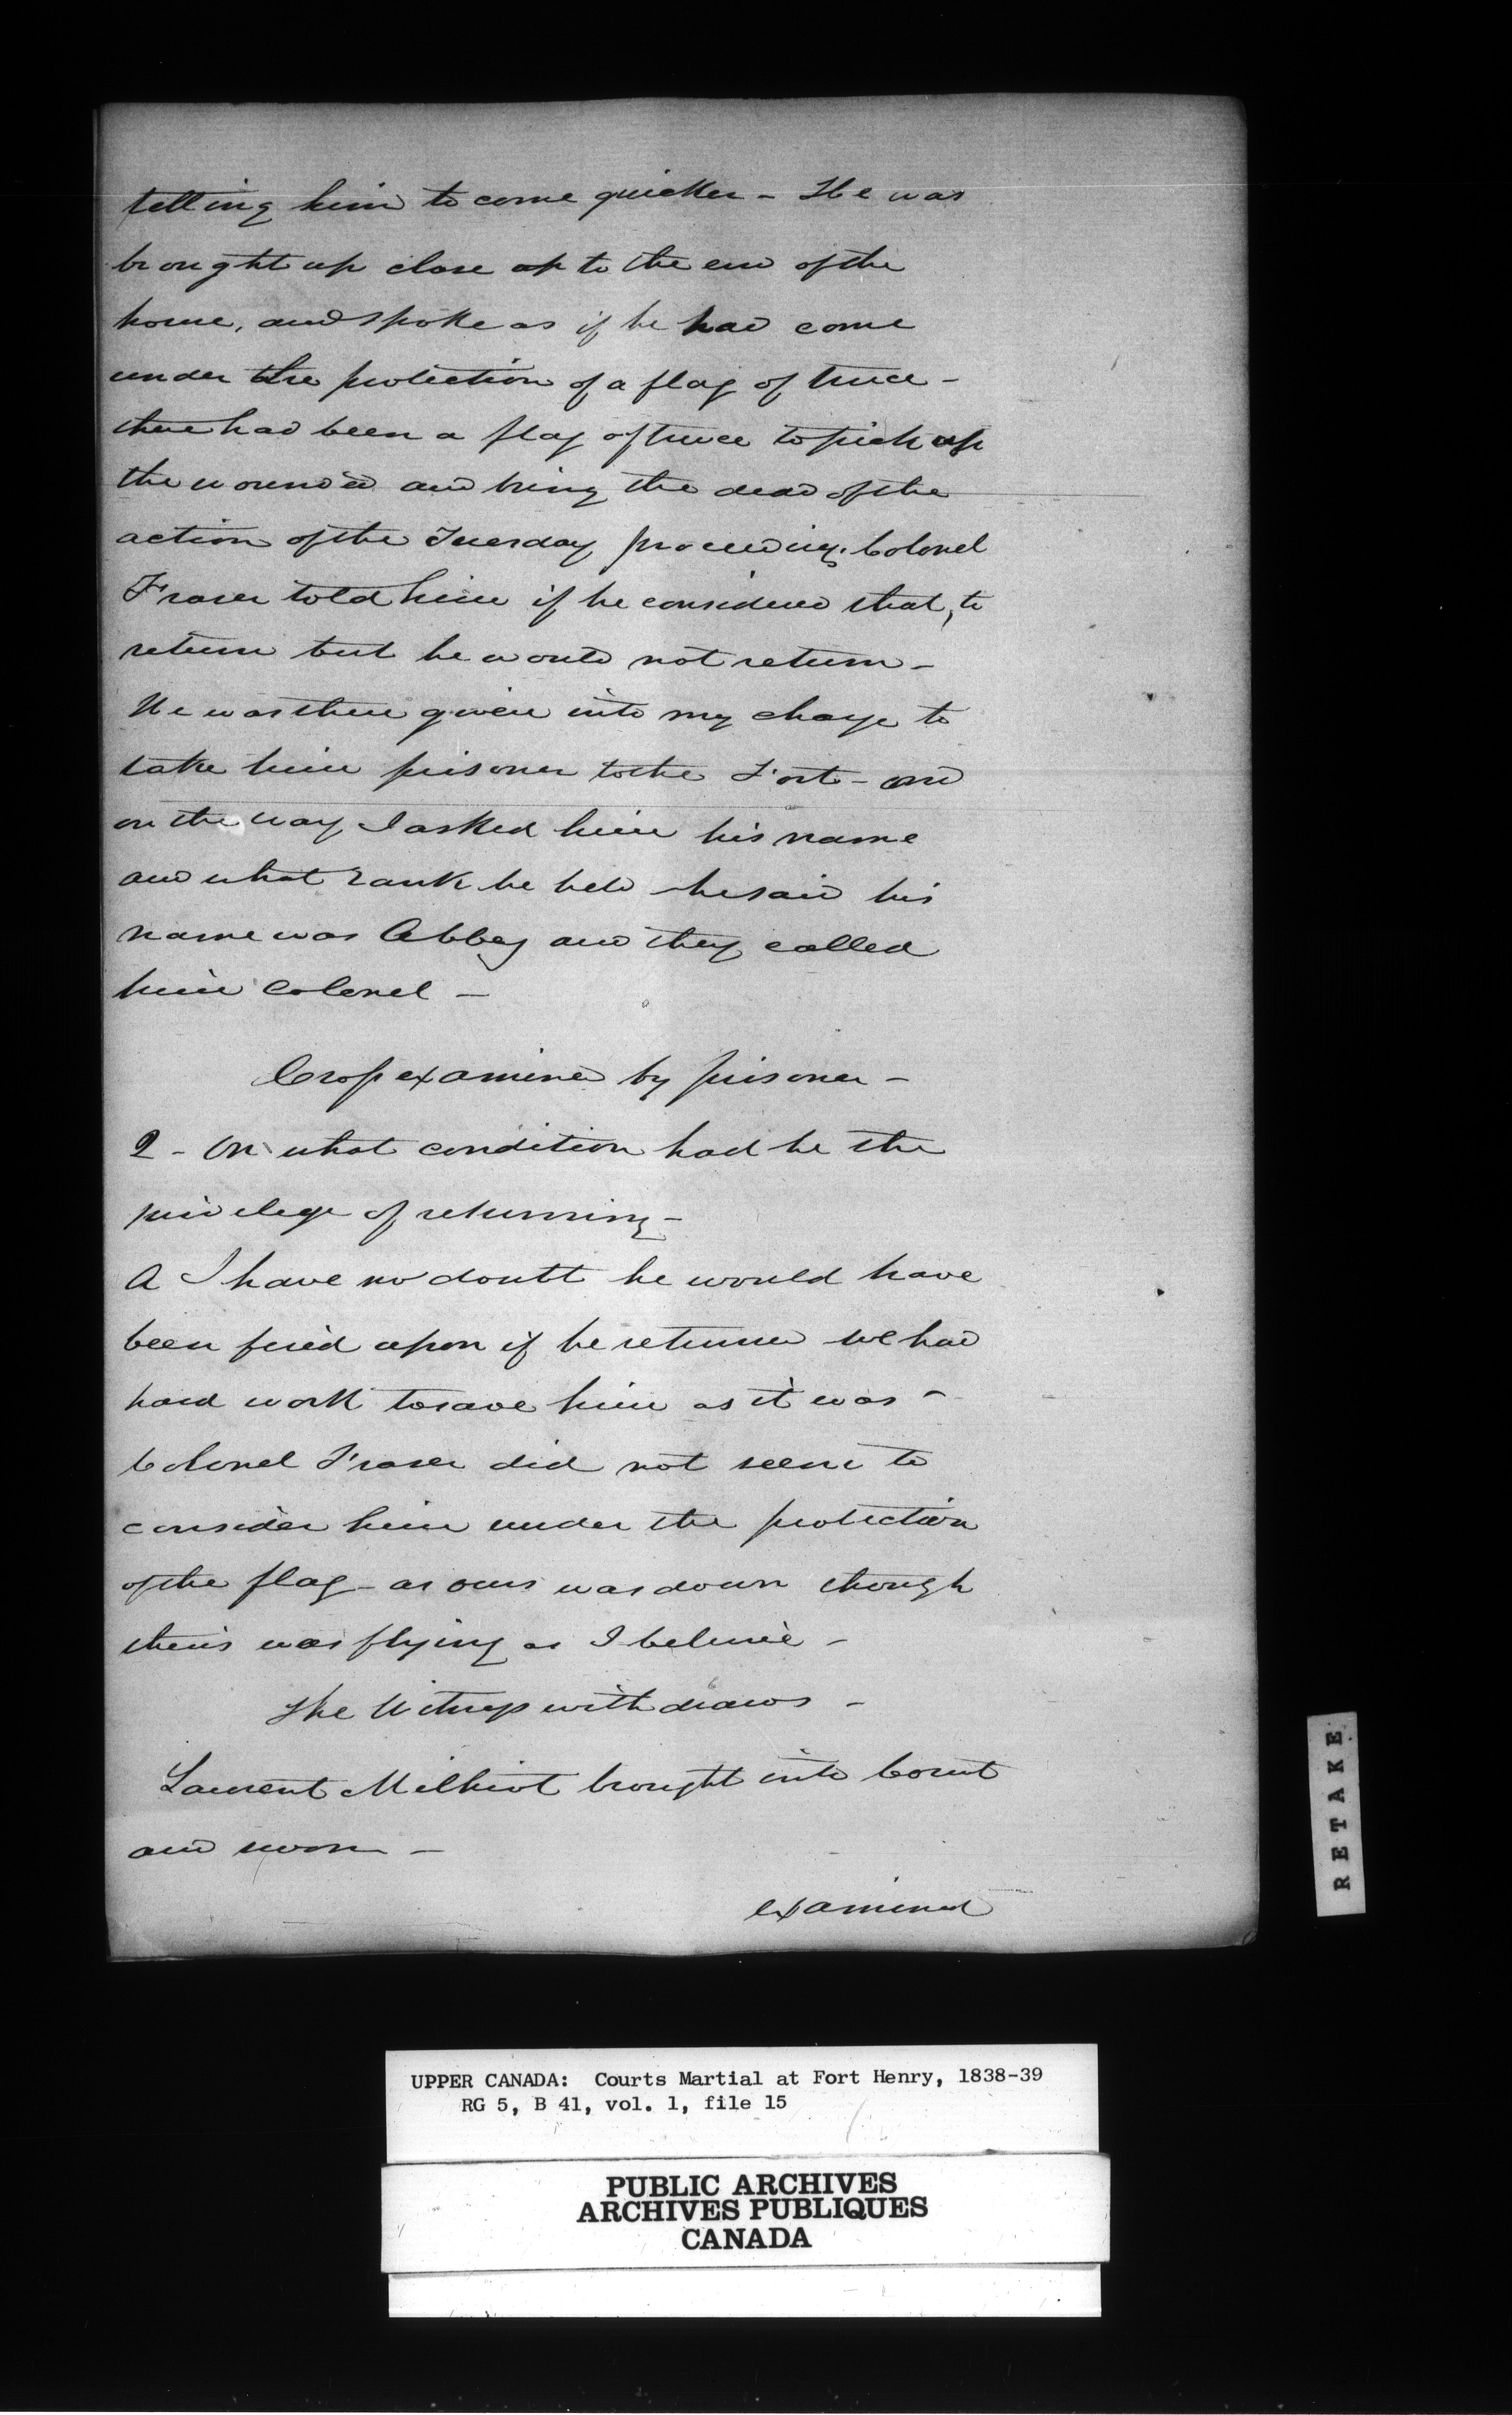 telling him to come quicker - He was
brought up close up to the end of the
house, and spoke as if he had come
under the protection of a flag of truce -
there had been a flag of truce to pick up
the wounded and bring the dead of the
action of the Tuesday proceeding. Colonel
Fraser told him if he considered that, to
return but he would not return -
He was then given into my charge to
take him prisoner to the Fort - and
on the way I asked him his name
and what rank he held he said his
name was Abbey and they called
him Colonel -
Cross examined by prisoner -
Q - On what condition had he the
privilege of returning -
A I have no doubt he would have
been fired upon if he returned we had
hard work to save him as it was -
Colonel Fraser did not seem to
consider him under the protection
of the flag - as ours was down though
theirs was flying as I believe -
The Witness withdraws -
Laurent Milhiot brought into Court
and sworn -
examined
RETAKE
UPPER CANADA: Courts Martial at Fort Henry, 1838-39
RG 5, B 41, vol. 1, file 15
PUBLIC ARCHIVES
ARCHIVES PUBLIQUES
CANADA